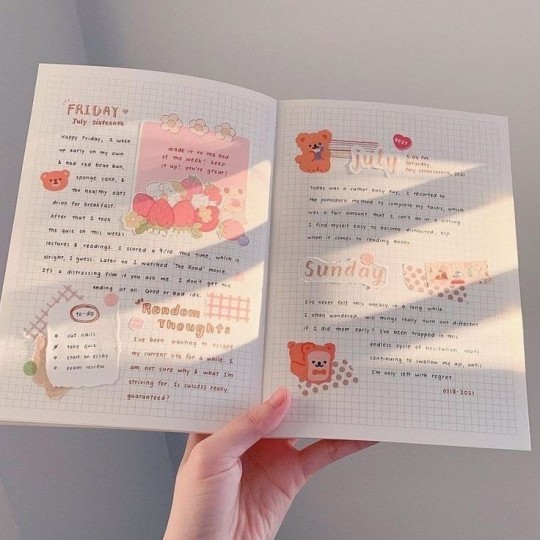 FRIDAY
July sixteenth
Happy Friday, I woke
up early on my own
& had red bean bun,
sponge cake, &
the healthy oats
drink for breakfast.
After that I took
the quiz on this week's
lectures & readings. I scored a 9/10 this time, which is
alright, I guess. Later on I watched 'The Road' movie.
It's a distressing film if you ask me. I don't get the
ending at all. Good or bad idk.
made it to the end
of the week! keep
it up! you're great!
to-do
cut nails
take quiz
start on essay
exam review
Random
Thoughts
I've been wanting to escape
my current life for a while. I
am not sure why & what I'm
striving for. Is success really
guaranteed?
BEST
july
5:06 PM
Saturday,
July seventeenth, 2021
Today was a rather busy day. I resorted to
the pomodoro method to complete my tasks, which
was a fair amount that I can't do in a sitting
I find myself easy to become distracted, esp
when it comes to reading books
Sunday
I've never felt this uneasy in a long while
I often wondered, will things really turn out different
if I did them early? I've been trapped in this
endless cycle of hesitation that's
continuing to swallow me up, until
I'm only left with regret.
0718-2021